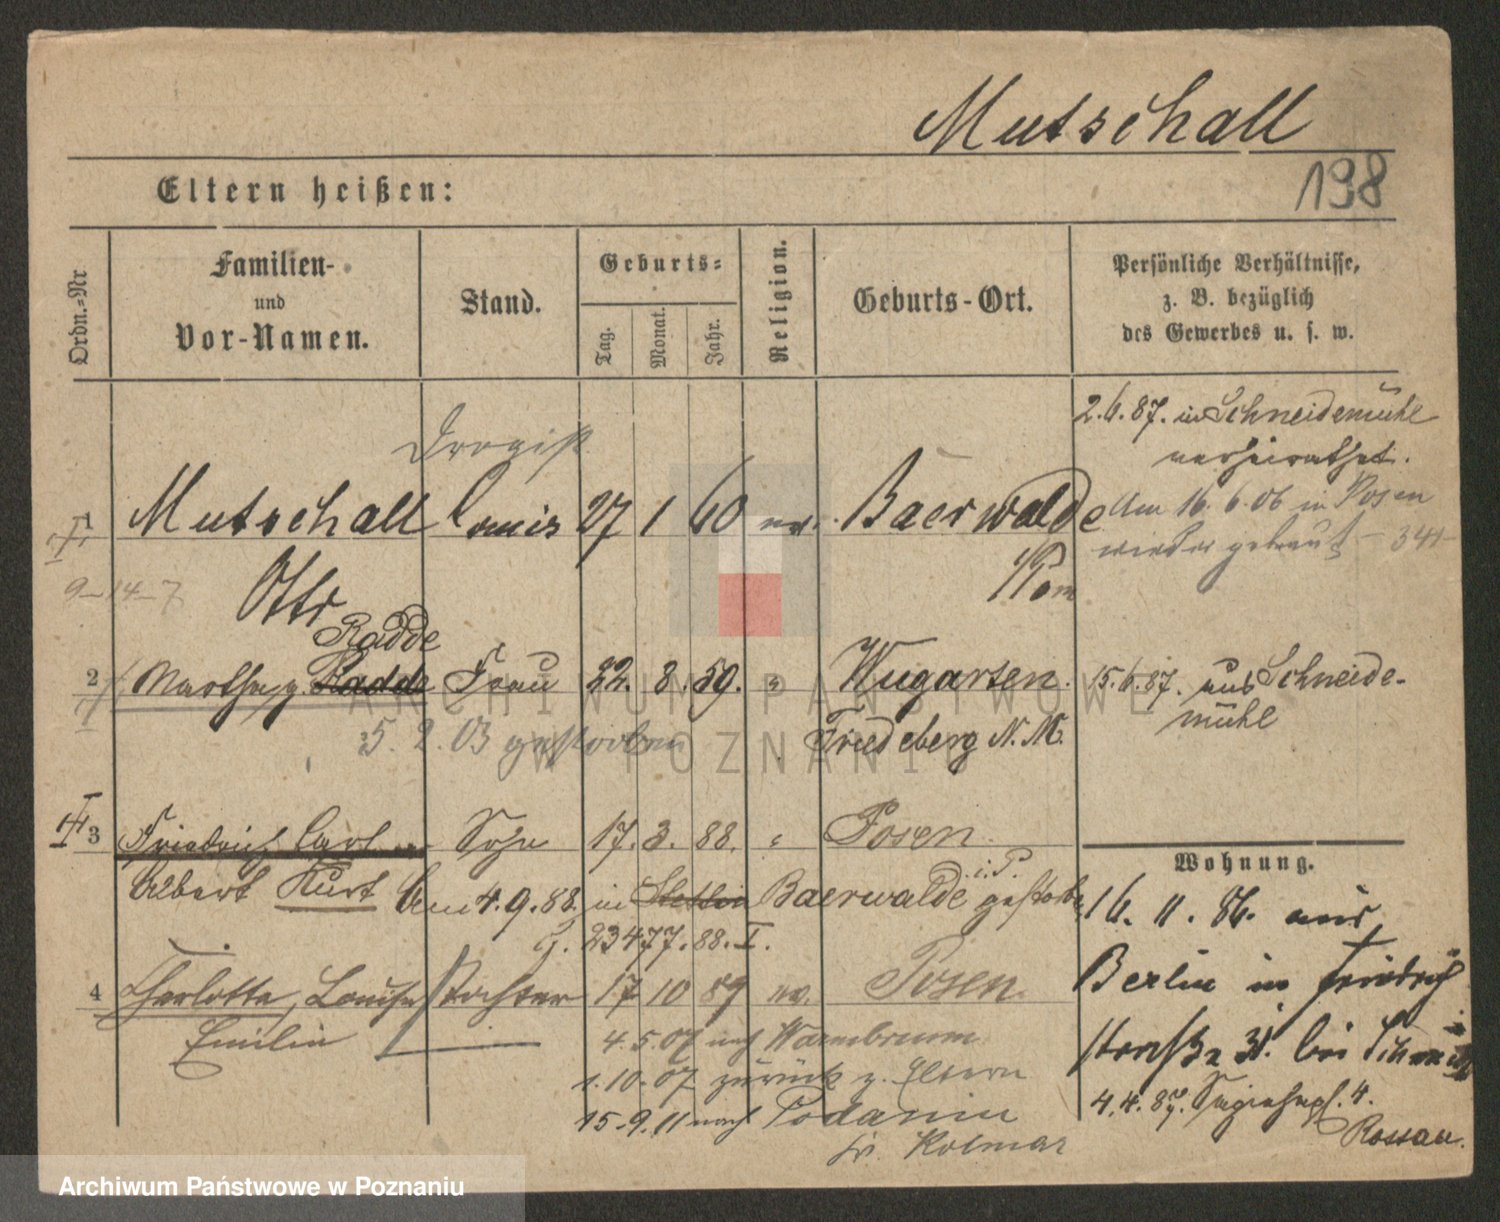 Mutschall
198
Eltern heißen:
Ordn.-Nr
Familien-
und
Vor-Namen.
Stand.
Geburts-
Tag.
Monat.
Jahr.
Religion.
Geburts-Ort.
Persönliche Verhältnisse,
z. B. bezüglich
des Gewerbes u. s. w.
2.6.87. in Schneidemühl
verheirathet.
Drogist
1 Mutschall 27 1 60 ev. Baerwalde
Am 16.6.06 in Posen
wieder getraut - 341-
9-14-7
Otto
Pom
Radde
2 Martha, g. Radde Frau 22. 8. 59. " Wugarten.
15.6.87. aus Schneide-
mühl
5. 2. 03 gestorben
Friedeberg N. M.
3 Friedrich Carl Sohn 17. 3. 88. " Posen
Wohnung.
Albert Kurt Am 4.9.88. in Stettin Baerwalde i. P. gestorben
G. 23477.88.I.
16. 11. 86. aus
Berlin in Friedrich
4 Charlotte, Louise Tochter 17 10 89 ev. Posen.
Emilie
straße 31. bei
4.5.07 nach Warmbrunn
1.10.07 zurück z. Eltern
15.9.11 nach Podanin
Kr. Kolmar
4.4.87.
Rossau.
ARCHIWUM PAŃSTWOWE
W POZNANIU
Archiwum Państwowe w Poznaniu